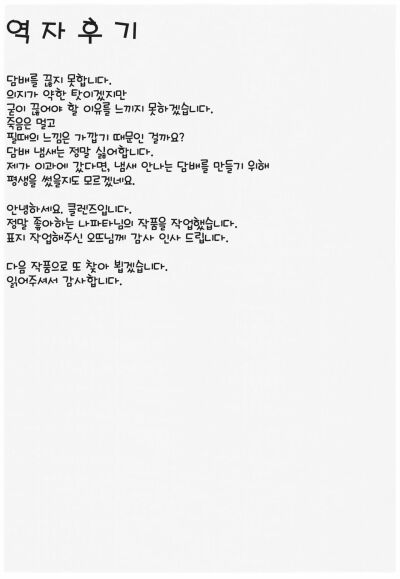 역자후기
담배를 끊지 못합니다.
의지가 약한 탓이겠지만
굳이 끊어야 할 이유를 느끼지 못하겠습니다.
죽음은 멀고
필때의 느낌은 가깝기 때문인 걸까요?
담배 냄새는 정말 싫어합니다.
제가 이과에 갔다면, 냄새 안나는 담배를 만들기 위해
평생을 썼을지도 모르겠네요.
안녕하세요. 클렌즈입니다.
정말 좋아하는 나파타님의 작품을 작업했습니다.
표지 작업해주신 오뜨님께 감사 인사 드립니다.
다음 작품으로 또 찾아 뵙겠습니다.
읽어주셔서 감사합니다.